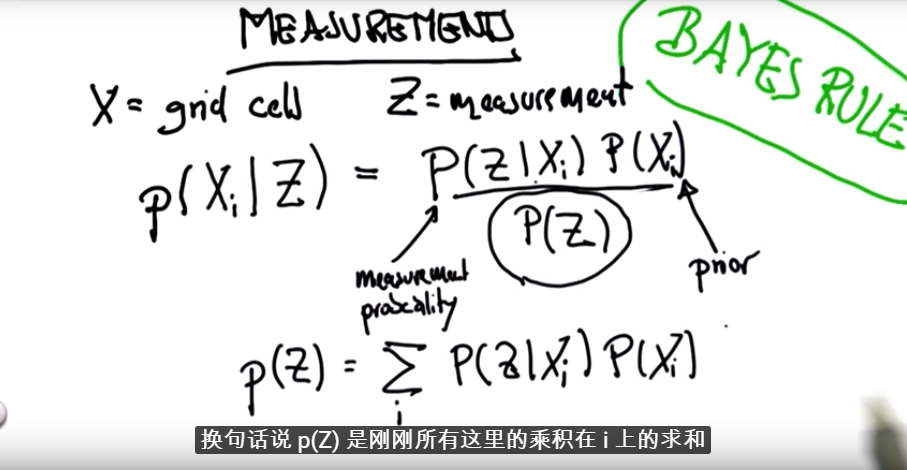 MEASUREMENTS
BAYES RULE
X = grid cell Z = measurement
p(Xi|Z) = P(Z|Xi) P(Xi)
P(Z)
measurement
probability
prior
p(Z) = ∑i P(Z|Xi) P(Xi)
换句话说 p(Z) 是刚刚所有这里的乘积在 i 上的求和